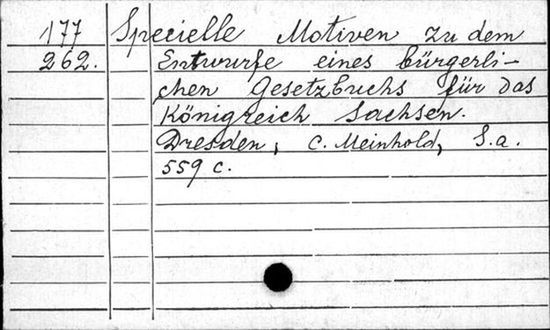 177 Specielle Motiven zu dem
262. Entwurfe eines bürgerli-
chen Gesetzbuchs für das
Königreich Sachsen.
Dresden, C. Meinhold, S.a.
559 c.